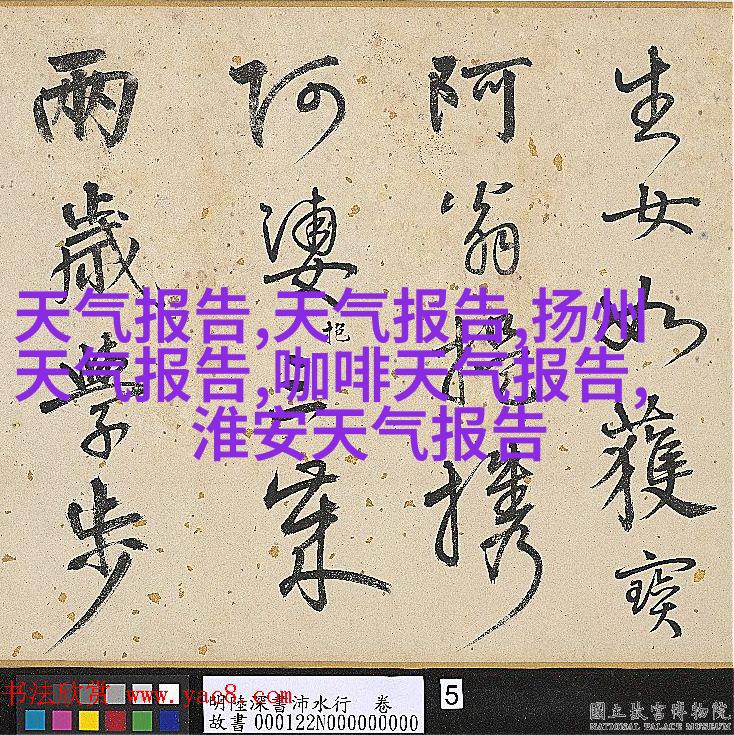 生女如獲寶
阿翁提携
阿婆抱
兩歲學步
天气报告,天气报告,扬州
天气报告,咖啡天气报告,
淮安天气报告
书法欣赏 www.yac8.com
明陸深書沛水行 卷
故書000122N000000000
5
國立故宮博物院
NATIONAL PALACE MUSEUM